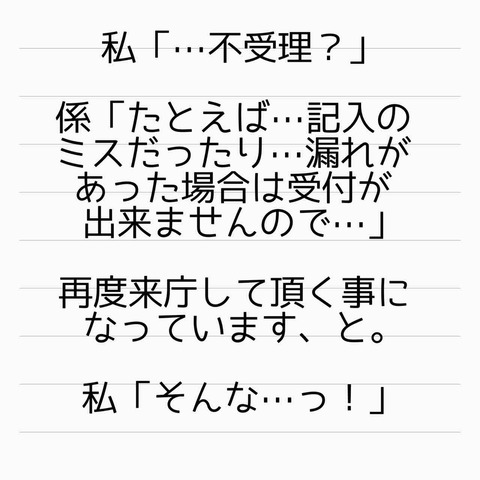 私「…不受理？」
係「たとえば…記入の
ミスだったり…漏れが
あった場合は受付が
出来ませんので…」
再度来庁して頂く事に
なっています、と。
私「そんな…っ！」